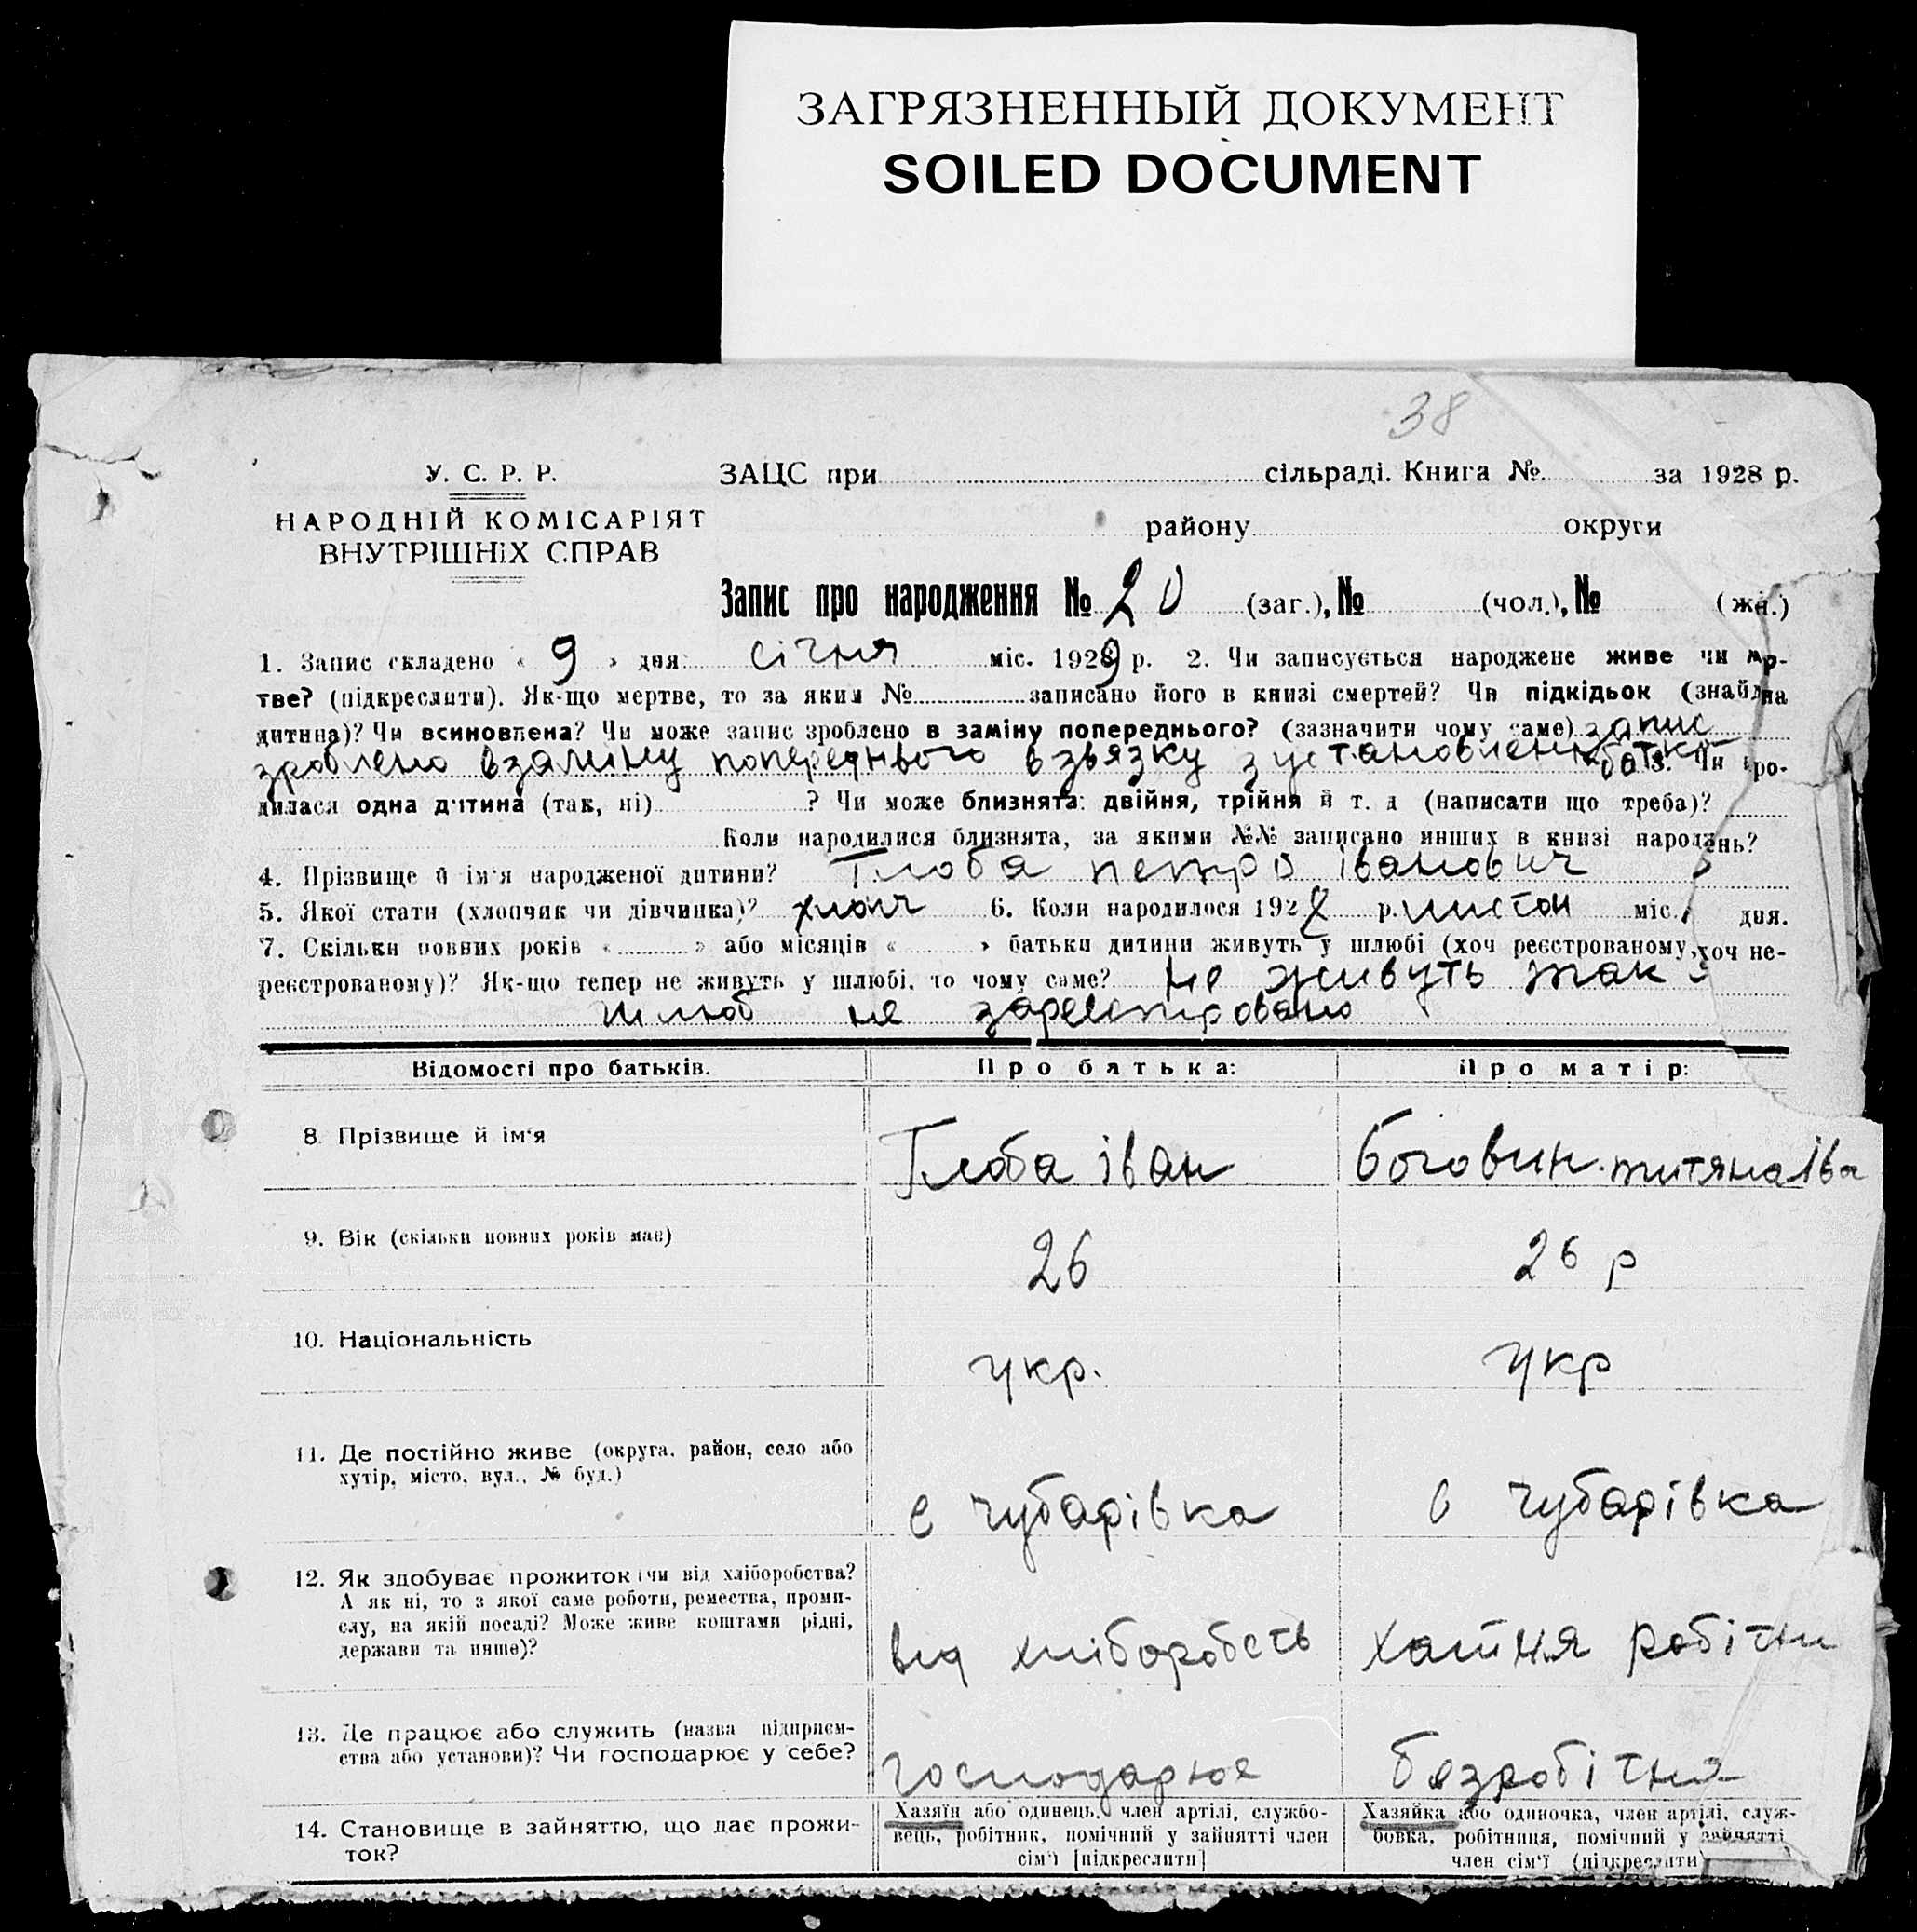 ЗАГРЯЗНЕННЫЙ ДОКУМЕНТ
SOILED DOCUMENT
38
У. С. Р. Р.
НАРОДНІЙ КОМІСАРІЯТ
ВНУТРІШНІХ СПРАВ
ЗАЦС при сільраді. Книга № за 1928 р.
району округи
Запис про народження № 20 (заг.), № (чол.), № (жі.)
1. Запис складено « 9 » дня січня міс. 1929 р. 2. Чи записується народжене живе чи мр-
тве? (підкреслити). Як-що мертве, то за яким № записано його в книзі смертей? Чи підкідьок (знайдена
дитина)? Чи всиновлена? Чи може запис зроблено в заміну попереднього? (зазначити чому саме) запис
зроблено взаміну попереднього взвязку з установлен батьк 3. Чи вро-
дилася одна дитина (так, ні) ? Чи може близнята: двійня, трійня й т. д (написати що треба)?
Коли народилися близнята, за якими №№ записано инших в книзі народжень?
4. Прізвище й ім'я народженої дитини? Глоба петро іванович
5. Якої стати (хлопчик чи дівчинка)? хлопч 6. Коли народилося 1928 р. листоп міс. дня.
7. Скільки повних років « » або місяців « » батьки дитини живуть у шлюбі (хоч реєстрованому, хоч не-
реєстрованому)? Як-що тепер не живуть у шлюбі, то чому саме? не живуть так
шлюб не зареестровано
Відомості про батьків. Про батька: Про матір:
8. Прізвище й ім'я Глоба іван боговин титяна Іва
9. Вік (скільки повних років має) 26 26 р
10. Національність укр. укр
11. Де постійно живе (округа, район, село або
хутір, місто, вул., № буд.)
с чубарівка с чубарівка
12. Як здобуває прожиток (чи від хліборобства?
А як ні, то з якої саме роботи, ремества, проми-
слу, на якій посаді? Може живе коштами рідні,
держави та инше)?
від хліборобств хатня робітни
13. Де працює або служить (назва підприєм-
ства або установи)? Чи господарює у себе?
господарює безробітня
14. Становище в зайняттю, що дає прожи-
ток?
Хазяїн або одинець, член артілі, службо-
вець, робітник, помічний у зайнятті член
сім'ї [підкреслити]
Хазяйка або одиночка, член артілі, служ-
бовка, робітниця, помічний у зайнятті
член сім'ї (підкреслити)